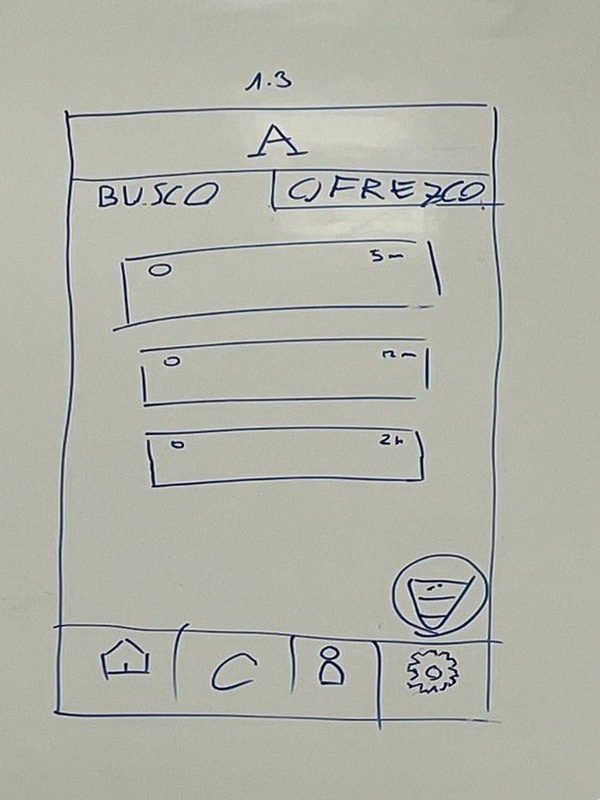 1.3
A
BUSCO OFREZCO
5m
12m
2h
C